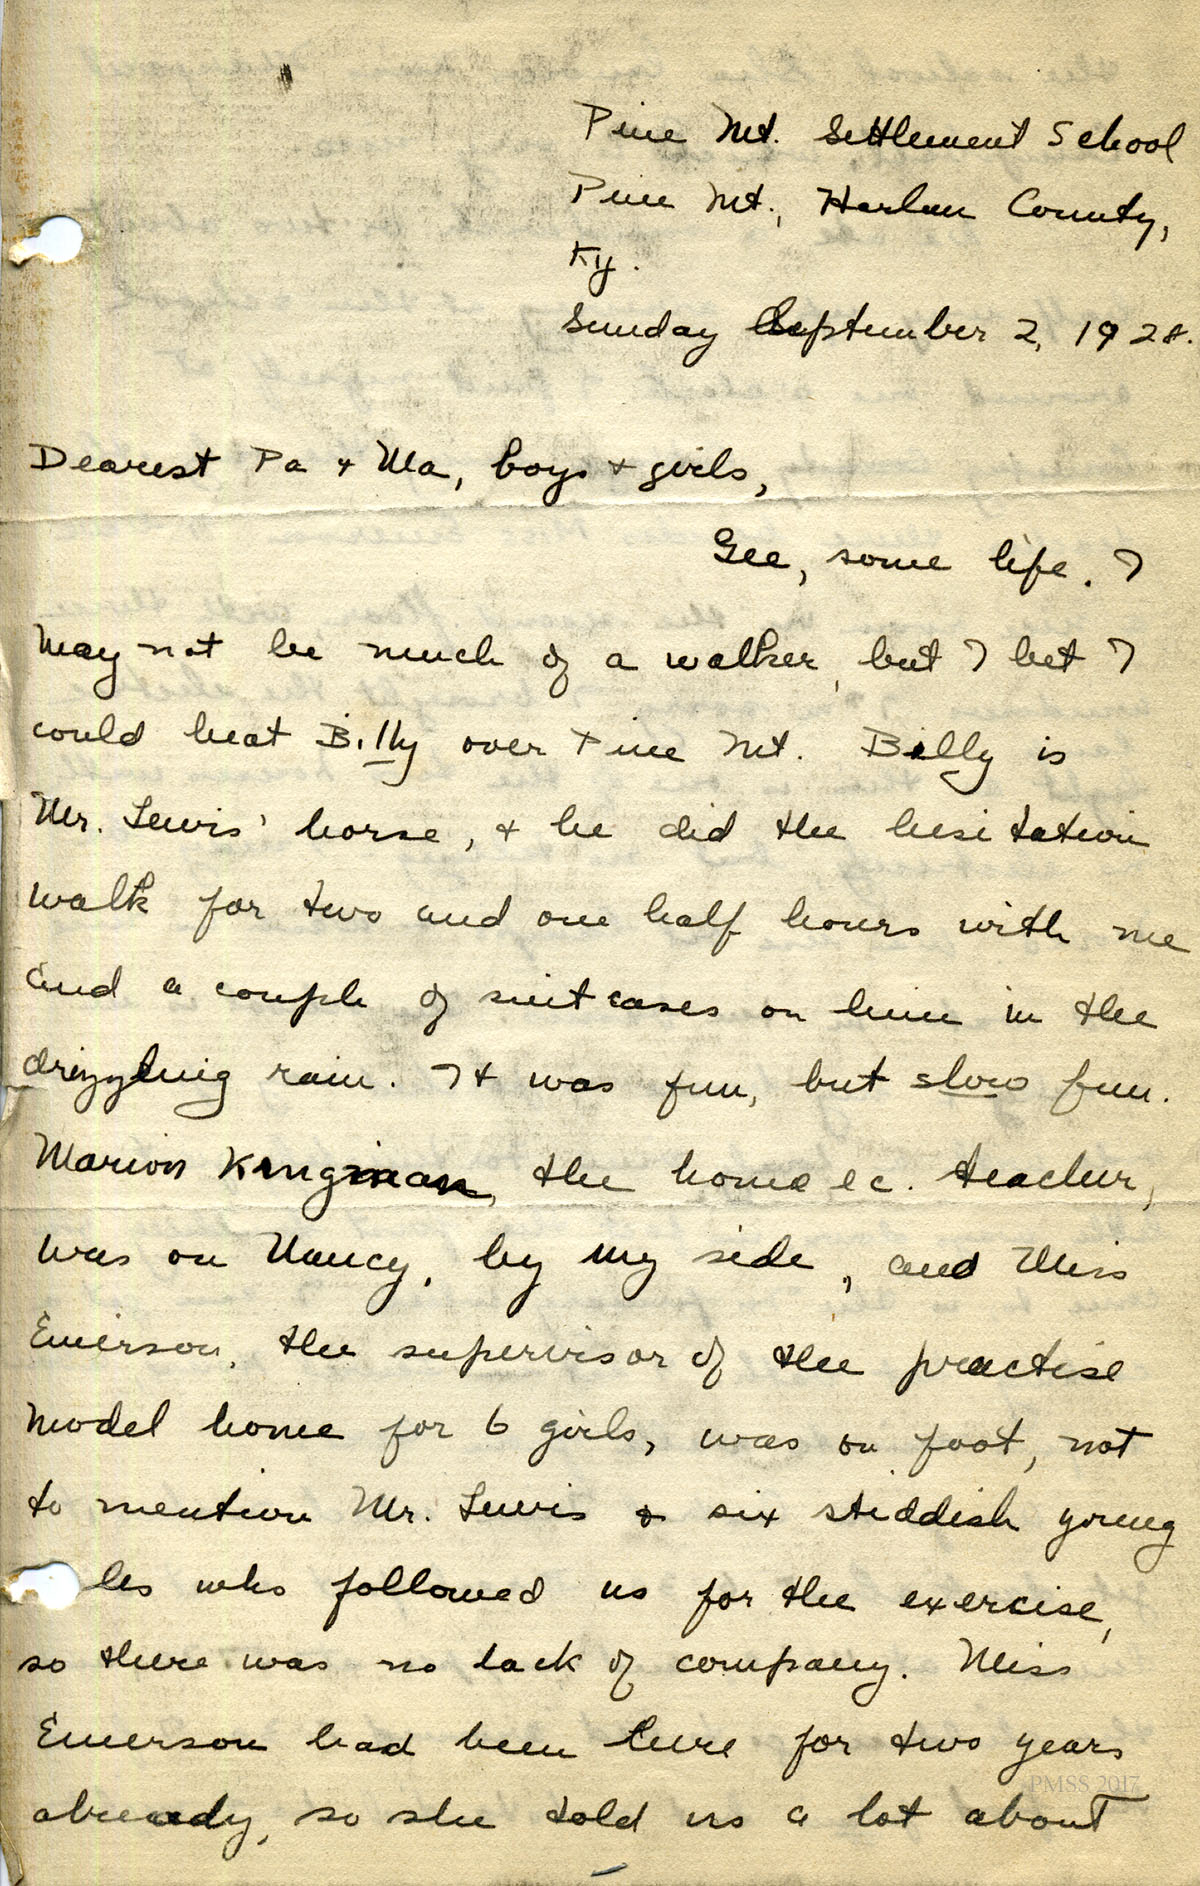 Pine Mt. Settlement School
Pine Mt., Harlan County,
Ky.
Sunday September 2, 1928.
Dearest Pa + Ma, boys + girls,
Gee, some life. I
may not be much of a walker, but I bet I
could beat Billy over Pine Mt. Billy is
Mr. Lewis' horse, + he did the hesitation
walk for two and one half hours with me
and a couple of suitcases on him in the
drizzling rain. It was fun, but slow fun.
Marion Kingman, the home ec. teacher,
was on Nancy, by my side, and Miss
Emerson, the supervisor of the practise
model home for 6 girls, was on foot, not
to mention Mr. Lewis + six young
les who followed us for the exercise,
so there was no lack of company. Miss
Emerson had been here for two years
already, so she told us a lot about
PMSS 2017